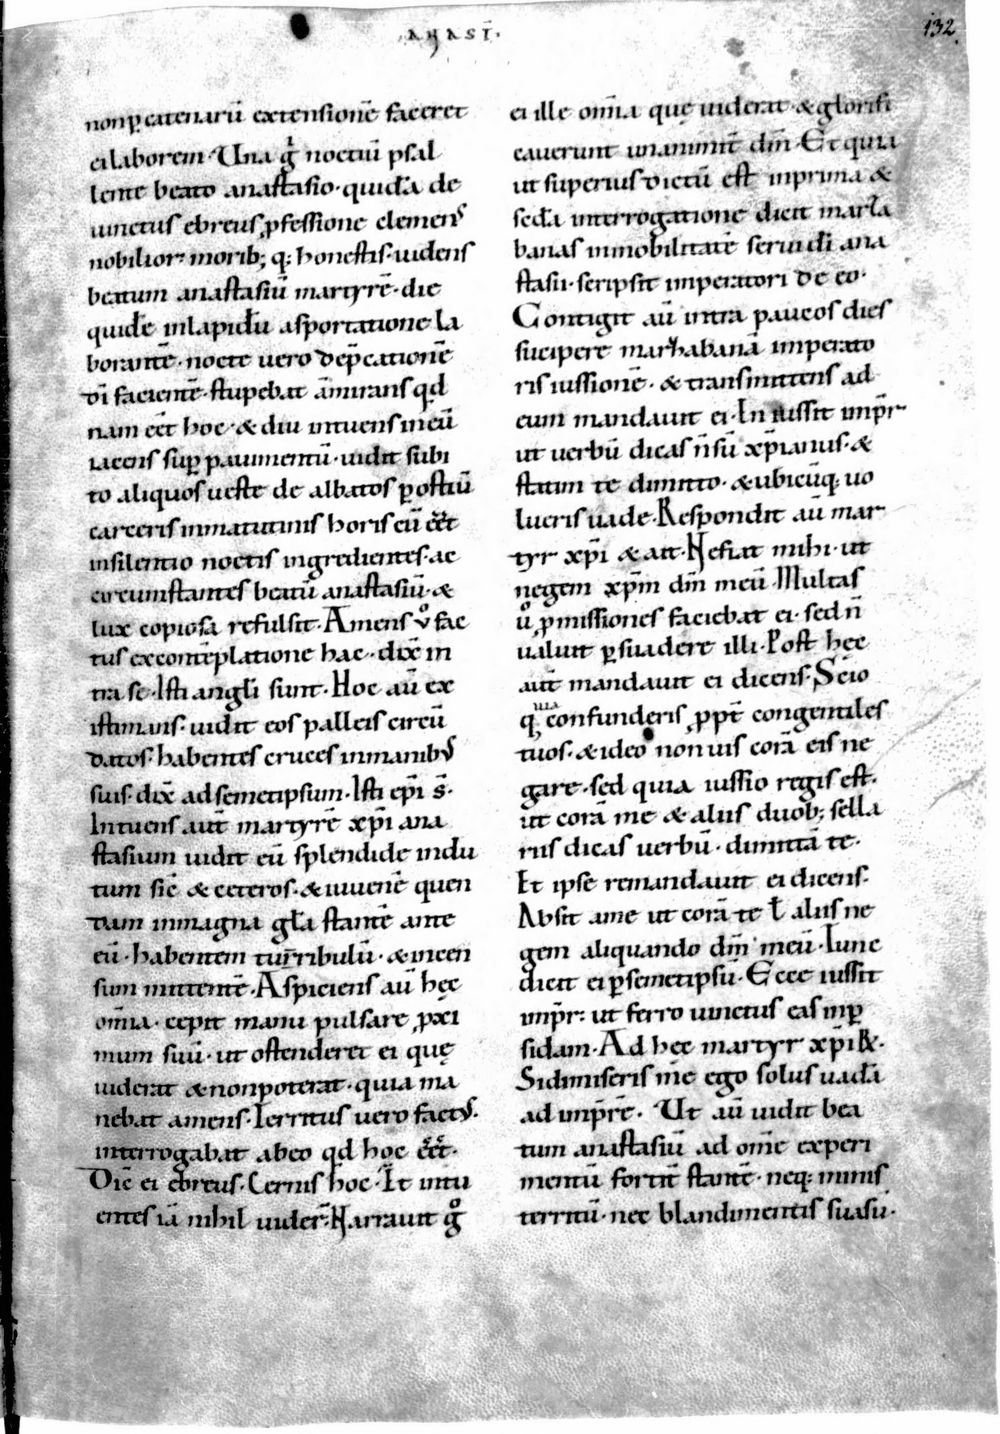 ·ANAST̄·
132.
non ꝑ catenarū extensionē faceret
ei laborem· Una g̊ noctiū psal
lente beato anastasio· quidā de
uinctus ebreus ꝓfessione clemens
nobilior morib; q; honestis· uidens
beatum anastasiū martyrē· die
quidē in lapidū asportatione la
borantē· nocte uero dep̄cationē
dī facientē· stupebat ām̄irans qd
nam eēt hoc· & diu intuens in eū
iacens suꝑ pauimentū· uidit subi
to aliquos ueste de albatos ꝑ ostiū
carceris in matutinis horis cū eēt
in silentio noctis ingredientes· ac
circumstantes beatū anastasiū· &
lux copiosa refulsit· Amens v̊ fac
tus ex contēplatione hac· dix̄ in
tra se· Isti angli sunt· Hoc aū ex
istimans· uidit eos palleis circū
datos· habentes cruces in manibus
suis· dix̄ ad semetipsum· Isti ep̄i s̄·
Intuens aut̄ martyrē xp̄i ana
stasium uidit eū splendide indu
tum sic̄ & ceteros· & iuuenē quen
dam in magna glā stantē ante
eū· habentem turribulū· & incen
sum mittentē· Aspiciens aū hęc
om̄ia· cepit manu pulsare ꝓxi
mum suū· ut ostenderet ei quę
uiderat & non poterat· quia ma
nebat amens· Territus uero factus·
interrogabat ab eo qd hoc eēt·
Dic̄ ei ebreus· Cernis hoc· Et intu
entes iā nihil uider̄· Narrauit g̊
ei ille om̄ia quę uiderat· & glorifi
cauerunt unanimit̄ dm̄· Et quia
ut superius dictū est in prima &
sedā interrogatione dicit marza
banas inmobilitatē serui dī ana
stasii· scripsit imperatori de eo·
Contigit aū intra paucos dies
sucipere marzhabanā imperato
ris iussionē· & transmittens ad
eum mandauit ei· In iussit imp̄r
ut uerbū dicas n̄ sū xp̄ianus· &
statim te dimitto· & ubicūq; uo
lueris uade· Respondit aū mar
tyr xp̄i & ait· Ne fiat mihi· ut
negem xp̄m dm̄ meū· Multas
ů ꝓmissiones faciebat ei· sed n̄
ualuit ꝑsuadere illi· Post hęc
aut̄ mandauit ei dicens· Scio
q; confunderis ꝓpt̄ congentiles
tuos· & ideo non uis corā eis ne
gare· sed quia iussio regis est·
ut corā me & aliis duob; sella
riis dicas uerbū· dimittā te·
Et ipse remandauit ei dicens·
Absit a me ut corā te ł aliis ne
gem aliquando dm̄ meū· Tunc
dicit ei ꝑ semetipsū· Ecce iussit
imp̄r· ut ferro uinctus eas in ꝑ
sidam· Ad hęc martyr xp̄i R̄·
Si dimiseris me ego solus uadā
ad imp̄rē· Ut aū uidit bea
tum anastasiū ad om̄e experi
mentū fortit̄ stantē· neq; minis
territū· nec blandimentis suasū·